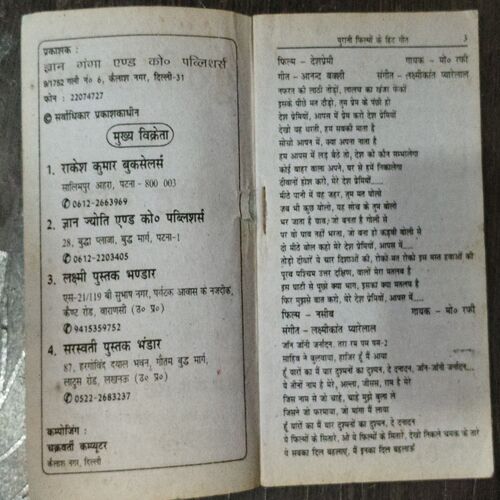 प्रकाशक :
ज्ञान गंगा एण्ड को० पब्लिशर्स
9/1782 गली नं० 6, कैलाश नगर, दिल्ली-31
फोन : 22074727
© सर्वाधिकार प्रकाशकाधीन
मुख्य विक्रेता
1. राकेश कुमार बुकसेलर्स
सालिमपुर अहरा, पटना - 800 003
✆0612-2663969
2. ज्ञान ज्योति एण्ड को० पब्लिशर्स
28, बुद्धा प्लाजा, बुद्ध मार्ग, पटना-1
✆0612-2203405
3. लक्ष्मी पुस्तक भण्डार
एस-21/119 बी सुभाष नगर, पर्यटक आवास के नजदीक,
कैण्ट रोड, वाराणसी (उ० प्र०)
✆9415359752
4. सरस्वती पुस्तक भंडार
87, हरगोविंद दयाल भवन, गौतम बुद्ध मार्ग,
लाटूस रोड, लखनऊ (उ० प्र०)
✆0522-2683237
कम्पोजिंग :
चक्रवर्ती कम्प्यूटर
कैलाश नगर, दिल्ली
पुरानी फिल्मों के हिट गीत 3
फिल्म - देशप्रेमी गायक - मो० रफी
गीत - आनन्द बक्शी संगीत - लक्ष्मीकांत प्यारेलाल
नफरत की लाठी तोड़ो, लालच का खंजर फेंको
इसके पीछे मत दौड़ो, तुम प्रेम के पंछी हो
देश प्रेमियों, आपस में प्रेम करो देश प्रेमियों
देखो यह धरती, हम सबकी माता है
सोचो आपस में, क्या अपना नाता है
हम आपस में लड़ बैठे तो, देश को कौन सम्भालेगा
कोई बाहर वाला अपने, घर से हमें निकालेगा
दीवानों होश करो, मेरे देश प्रेमियों.....
मीठे पानी में यह जहर, तुम मत घोलो
जब भी कुछ बोलो, यह सोच के तुम बोलो
भर जाता है घाव, जो बनता है गोली से
पर वो घाव नहीं भरता, जो बना हो कड़वी बोली से
दो मीठे बोल कहो मेरे देश प्रेमियों, आपस में.....
तोड़ो दीवारें ये चार दिशाओं की, रोको मत रोको इस मस्त हवाओं की
पूरब पश्चिम उत्तर दक्षिण, वालों मेरा मतलब है
इस घाटी से पूछो क्या भाग, इसका क्या मतलब है
फिर मुझसे बात करो, मेरे देश प्रेमियों, आपस में.....
फिल्म - नसीब गायक - मो० रफी
संगीत - लक्ष्मीकांत प्यारेलाल
जॉन जॉनी जनार्दन, तरा रम पम पम-2
साहिब ने बुलवाया, हाजिर हूँ मैं आया
हूँ यारों का मैं यार दुश्मनों का दुश्मन, दे दनादन, जॉन-जॉनी जर्नादन...
ये तीनों नाम है मेरे, अल्ला, जीसस, राम है मेरे
जिस नाम से जो चाहे, चाहे मुझे बुला ले
जिसने जो फरमाया, जो मांगा मैं लाया
हूँ यारों का मैं यार दुश्मनों का दुश्मन, दे दनादन
ये फिल्मों के सितारे, ओ ये फिल्मों के सितारे, देखो निकले चमक के तारे
ये सबका दिल बहलाए, मैं इनका दिल बहलाऊँ